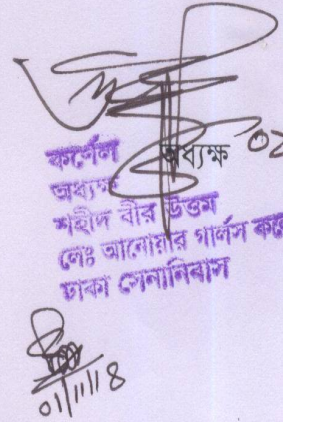 অধ্যক্ষ
কর্ণেল
অধ্যক্ষ
শহীদ বীর উত্তম
লেঃ আনোয়ার গার্লস কলে
ঢাকা সেনানিবাস
01/11/18